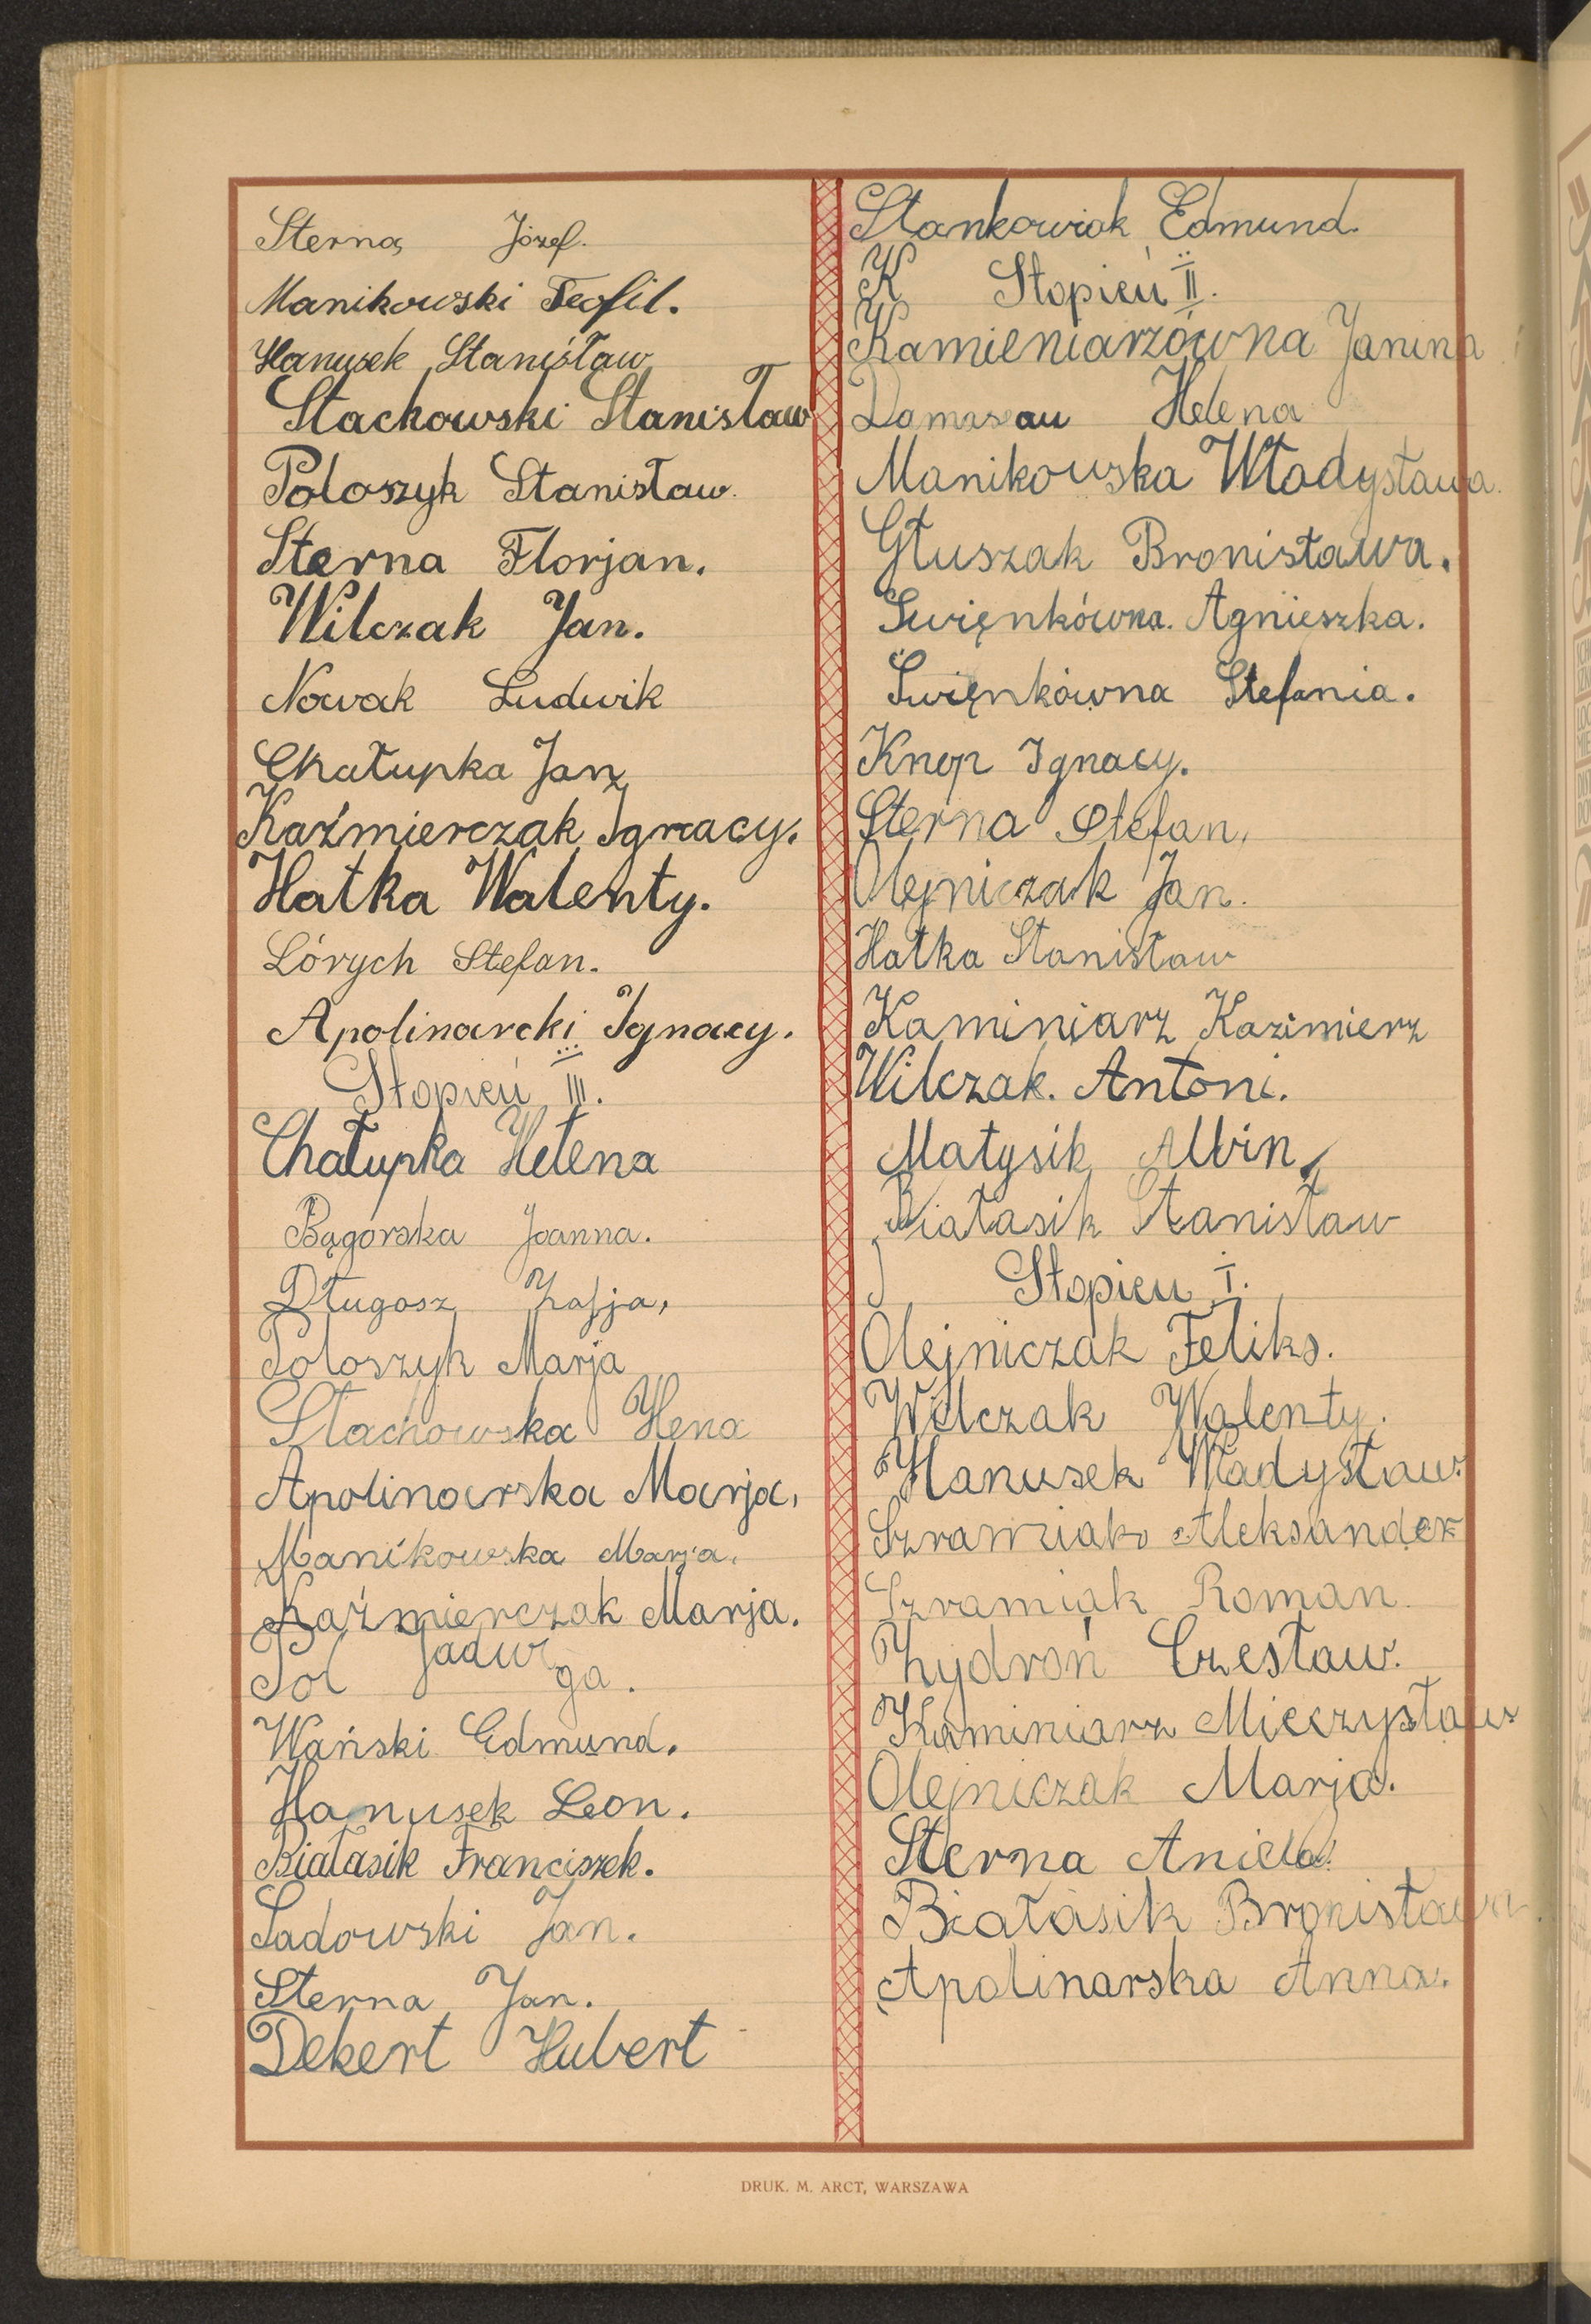 Sterna Józef.
Manikowski Teofil.
Hanusek Stanisław
Stachowski Stanisław
Poloszyk Stanisław.
Sterna Florjan.
Wilczak Jan.
Nowak Ludwik
Chałupka Jan
Kaźmierczak Ignacy.
Hatka Walenty.
Lórych Stefan.
Apolinarcki Ignacy.
Stopień III.
Chałupka Helena
Bągorska Joanna.
Długosz Zofja,
Poloszyk Marja
Stachowska Hena
Apolinarska Marja,
Manikowska Marja.
Kaźmierczak Marja.
Pol Jadwiga.
Wański Edmund.
Hanusek Leon.
Białasik Franciszek.
Sadowski Jan.
Sterna Jan.
Dekert Hubert
Stankowiak Edmund.
K Stopień II.
Kamieniarzówna Janina
Helena
Manikowska Władysława.
Głuszak Bronisława.
Swięnkówna. Agnieszka.
Święnkówna Stefania.
Knop Ignacy.
Sterna Stefan,
Olejniczak Jan.
Hatka Stanisław
Kaminiarz Kazimierz
Wilczak. Antoni.
Matysik Albin
Białasik Stanisław
Stopień I.
Olejniczak Feliks.
Wilczak Walenty.
Hanusek Władysław.
Szramiak Aleksander
Szramiak Roman.
Zydroń Czesław.
Kaminiarz Mieczysław
Olejniczak Marja.
Sterna Aniela.
Białasik Bronisława.
Apolinarska Anna.
DRUK. M. ARCT, WARSZAWA